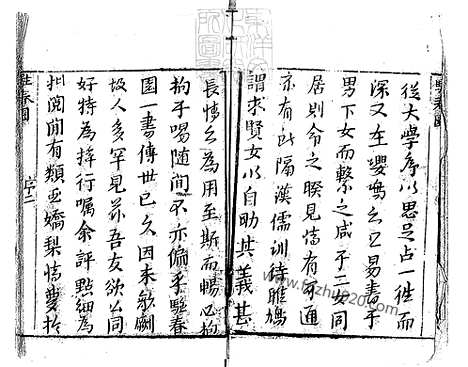 從大學序以思足占一徃而
深又在嚶鳴之上易書乎
男下女而繫之咸乎二女同
居則命之睽見情有不通
亦有所隔漢儒訓詩雎鳩
謂求賢女以自助其義甚
長情之為用至斯而暢必拘
拘乎喝隨間不亦偏乎駐春
園一書傳世已久因未剞劂
故人多罕見茲吾友欲公同
好特為梓行囑余評點細為
批閱間有類玉嬌梨情夢柝
駐春園
序二